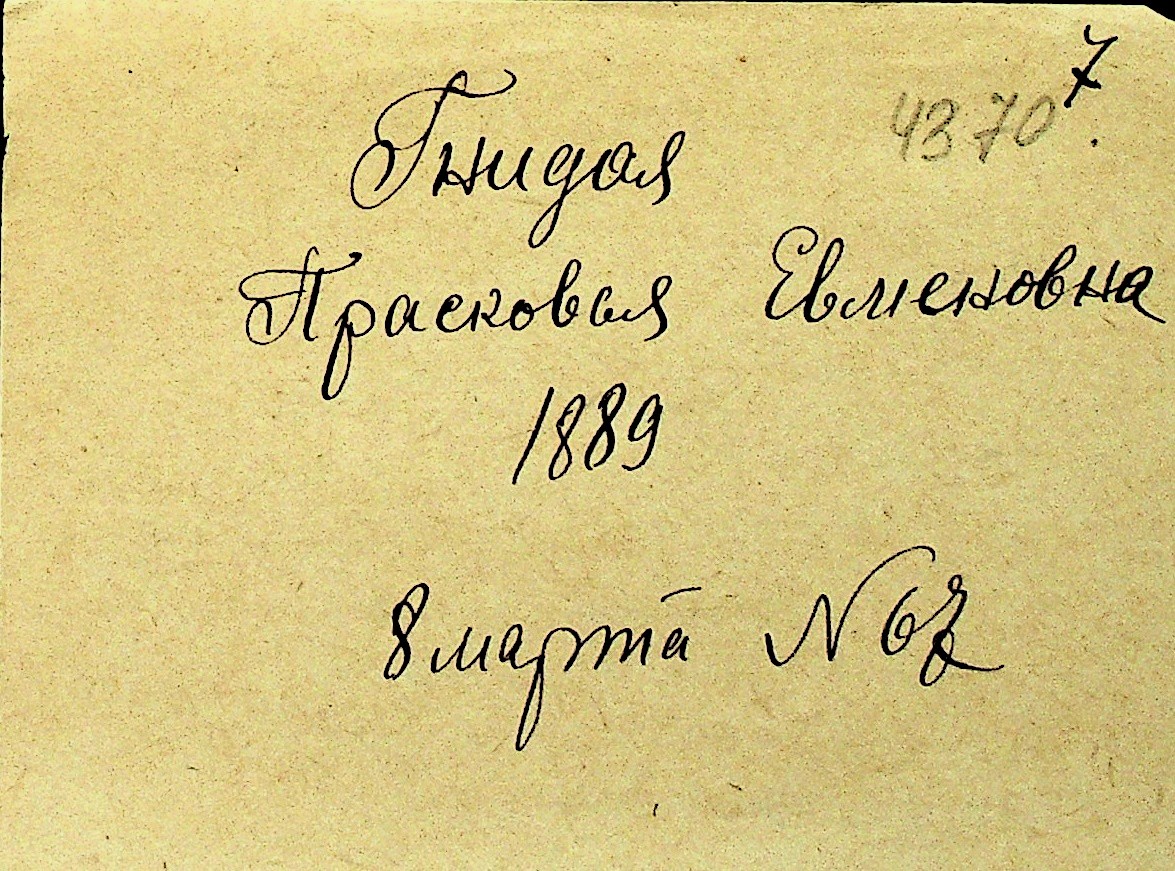 7
4370
Гнидая
Прасковья Евменовна
1889
8 марта N 62